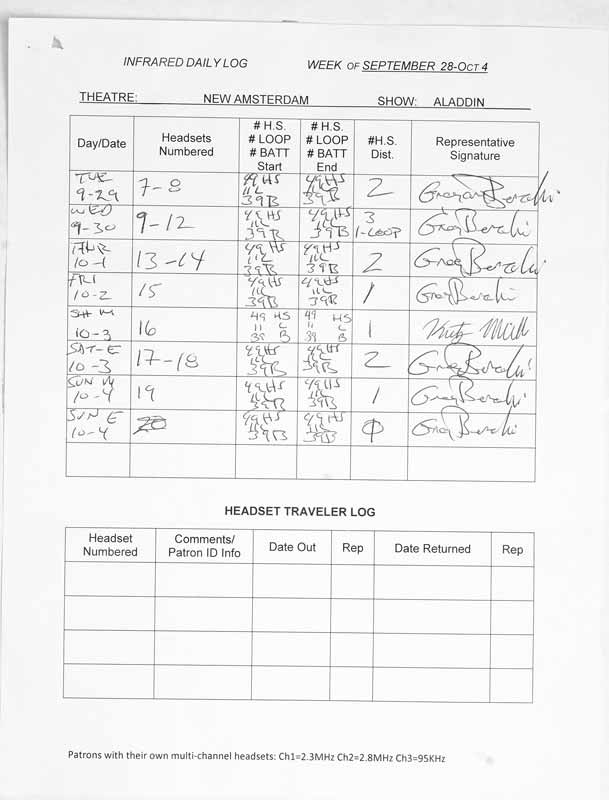 INFRARED DAILY LOG WEEK OF SEPTEMBER 28-OCT 4
THEATRE: NEW AMSTERDAM SHOW: ALADDIN
Day/Date Headsets Numbered # H.S. # LOOP # BATT Start # H.S. # LOOP # BATT End #H.S. Dist. Representative Signature
TUE 9-29 7-8 49 HS 11 L 39 B 49 HS 11 L 39 B 2
WED 9-30 9-12 49 HS 11 L 39 B 49 HS 11 L 39 B 3 1-LOOP Greg
THUR 10-1 13-14 49 HS 11 L 39 B 49 HS 11 L 39 B 2 Greg
FRI 10-2 15 49 HS 11 L 39 B 49 HS 11 L 39 B 1 Greg
SAT M 10-3 16 49 HS 11 L 39 B 49 HS 11 L 39 B 1
SAT-E 10-3 17-18 49 HS 11 L 39 B 49 HS 11 L 39 B 2 Greg
SUN M 10-4 19 49 HS 11 L 39 B 49 HS 11 L 39 B 1 Greg
SUN E 10-4 20 49 HS 11 L 39 B 49 HS 11 L 39 B 0 Greg
HEADSET TRAVELER LOG
Headset Numbered Comments/ Patron ID Info Date Out Rep Date Returned Rep
Patrons with their own multi-channel headsets: Ch1=2.3MHz Ch2=2.8MHz Ch3=95KHz